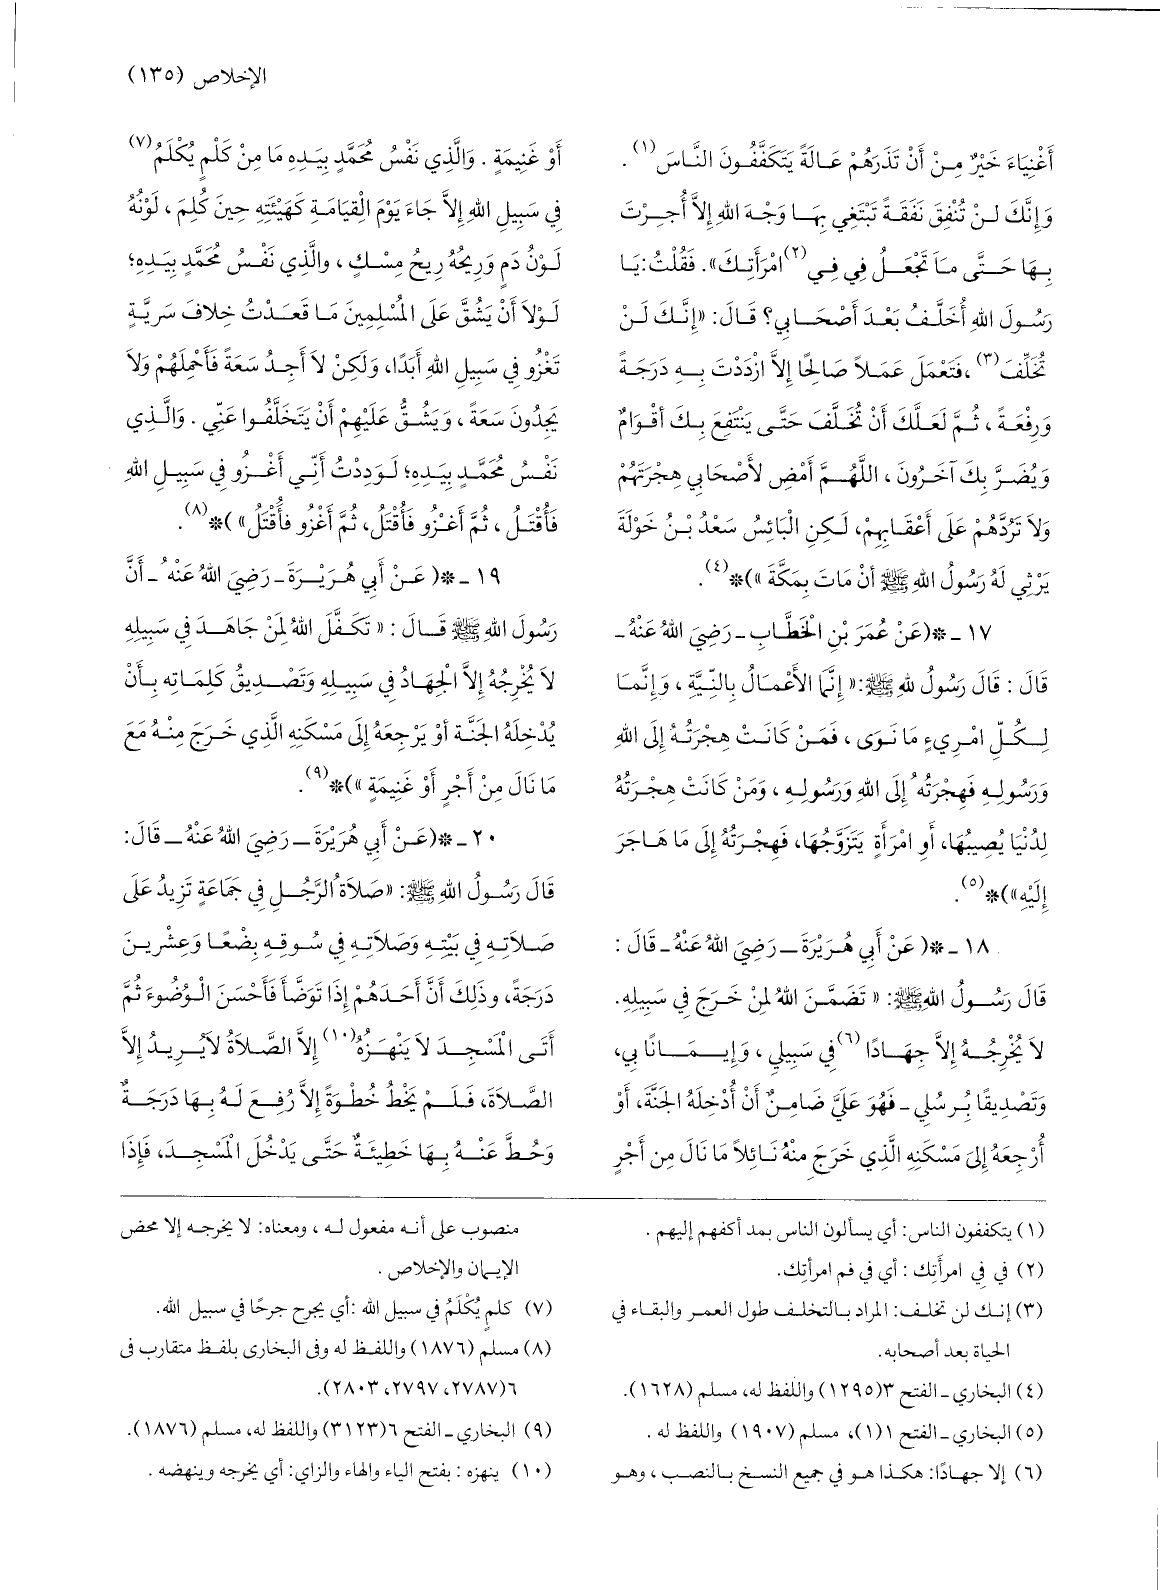 الإخلاص (١٣٥)
أَغْنِيَاءَ خَيْرٌ مِنْ أَنْ تَذَرَهُمْ عَالَةً يَتَكَفَّفُونَ النَّاسَ (١) .
وَإِنَّكَ لَنْ تُنْفِقَ نَفَقَةً تَبْتَغِي بِهَا وَجْهَ اللهِ إِلاَّ أُجِرْتَ
بِهَا حَتَّى مَا تَجْعَلُ فِي فِي (٢) امْرَأَتِكَ». فَقُلْتُ: يَا
رَسُولَ اللهِ أُخَلَّفُ بَعْدَ أَصْحَابِي؟ قَالَ: «إِنَّكَ لَنْ
تُخَلَّفَ (٣) ، فَتَعْمَلَ عَمَلاً صَالِحًا إِلاَّ ازْدَدْتَ بِهِ دَرَجَةً
وَرِفْعَةً ، ثُمَّ لَعَلَّكَ أَنْ تُخَلَّفَ حَتَّى يَنْتَفِعَ بِكَ أَقْوَامٌ
وَيُضَرَّ بِكَ آخَرُونَ ، اللَّهُمَّ أَمْضِ لأَصْحَابِي هِجْرَتَهُمْ
وَلاَ تَرُدَّهُمْ عَلَى أَعْقَابِهِمْ، لَكِنِ الْبَائِسُ سَعْدُ بْنُ خَوْلَةَ
يَرْثِي لَهُ رَسُولُ اللهِ ﷺ أَنْ مَاتَ بِمَكَّةَ »)* (٤).
١٧ ـ *(عَنْ عُمَرَ بْنِ الْخَطَّابِ ـ رَضِيَ اللهُ عَنْهُ ـ
قَالَ : قَالَ رَسُولُ للهِ ﷺ:« إِنَّمَا الأَعْمَالُ بِالنِّيَّةِ ، وَإِنَّمَا
لِكُلِّ امْرِيءٍ مَا نَوَى ، فَمَنْ كَانَتْ هِجْرَتُهُ إِلَى اللهِ
وَرَسُولِهِ فَهِجْرَتُهُ إِلَى اللهِ وَرَسُولِهِ ، وَمَنْ كَانَتْ هِجْرَتُهُ
لِدُنْيَا يُصِيبُهَا، أَوِ امْرَأَةٍ يَتَزَوَّجُهَا، فَهِجْرَتُهُ إِلَى مَا هَاجَرَ
إِلَيْهِ»)* (٥).
١٨ ـ *( عَنْ أَبِي هُرَيْرَةَ ـ رَضِيَ اللهُ عَنْهُ ـ قَالَ :
قَالَ رَسُولُ اللهِ ﷺ: « تَضَمَّنَ اللهُ لِمَنْ خَرَجَ فِي سَبِيلِهِ.
لاَ يُخْرِجُهُ إِلاَّ جِهَادًا (٦) فِي سَبِيلِي ، وَإِيمَانًا بِي،
وَتَصْدِيقًا بُرسُلِي ـ فَهُوَ عَلَيَّ ضَامِنٌ أَنْ أُدْخِلَهُ الجَنَّةَ، أَوْ
أُرْجِعَهُ إِلَى مَسْكَنِهِ الَّذِي خَرَجَ مِنْهُ نَائِلاً مَا نَالَ مِن أَجْرٍ
أَوْ غَنِيمَةٍ . وَالَّذِي نَفْسُ مُحَمَّدٍ بِيَدِهِ مَا مِنْ كَلْمٍ يُكْلَمُ (٧)
فِي سَبِيلِ اللهِ إِلاَّ جَاءَ يَوْمَ الْقِيَامَةِ كَهَيْئَتِهِ حِينَ كُلِمَ ، لَوْنُهُ
لَوْنُ دَمٍ وَرِيحُهُ رِيحُ مِسْكٍ ، والَّذِي نَفْسُ مُحَمَّدٍ بِيَدِهِ؛
لَوْلاَ أَنْ يَشُقَّ عَلَى المُسْلِمِينَ مَا قَعَدْتُ خِلافَ سَرِيَّةٍ
تَغْزُو فِي سَبِيلِ اللهِ أَبَدًا، وَلَكِنْ لاَ أَجِدُ سَعَةً فَأَحْمِلَهُمْ وَلاَ
يَجِدُونَ سَعَةً ، وَيَشُقُّ عَلَيْهِمْ أَنْ يَتَخَلَّفُوا عَنِّي . وَالَّذِي
نَفْسُ مُحَمَّدٍ بِيَدِهِ؛ لَوَدِدْتُ أَنِّي أَغْزُو فِي سَبِيلِ اللهِ
فَأُقْتَلُ ، ثُمَّ أَغْزُو فَأُقْتَلُ، ثُمَّ أَغْزُو فأُقْتَلُ» )* (٨).
١٩ ـ *( عَنْ أَبِي هُرَيْرَةَ ـ رَضِيَ اللهُ عَنْهُ ـ أَنَّ
رَسُولَ اللهِ ﷺ قَالَ : « تَكَفَّلَ اللهُ لِمَنْ جَاهَدَ فِي سَبِيلِهِ
لاَ يُخْرِجُهُ إِلاَّ الْجِهَادُ فِي سَبِيلِهِ وَتَصْدِيقُ كَلِمَاتِهِ بِأَنْ
يُدْخِلَهُ الجَنَّة أَوْ يَرْجِعَهُ إِلَى مَسْكَنِهِ الَّذِي خَرَجَ مِنْهُ مَعَ
مَا نَالَ مِنْ أَجْرٍ أَوْ غَنِيمَةٍ »)* (٩).
٢٠ ـ *(عَنْ أَبِي هُرَيْرَةَ ـ رَضِيَ اللهُ عَنْهُ ـ قَالَ:
قَالَ رَسُولُ اللهِ ﷺ: «صَلاَةُ الرَّجُلِ فِي جَمَاعَةٍ تَزِيدُ عَلَى
صَلاَتِهِ فِي بَيْتِهِ وَصَلاَتِهِ فِي سُوقِهِ بِضْعًا وَعِشْرِينَ
دَرَجَةً، وذَلِكَ أَنَّ أَحَدَهُمْ إِذَا تَوَضَّأَ فَأَحْسَنَ الْوُضُوءَ ثُمَّ
أَتَى الْمَسْجِدَ لاَ يَنْهَزُهُ (١٠) إِلاَّ الصَّلاَةُ لاَيُرِيدُ إِلاَّ
الصَّلاَةَ، فَلَمْ يَخْطُ خُطْوَةً إِلاَّ رُفِعَ لَهُ بِهَا دَرَجَةٌ
وَحُطَّ عَنْهُ بِهَا خَطِيئَةٌ حَتَّى يَدْخُلَ الْمَسْجِدَ، فَإِذَا
(١) يتكففون الناس: أي يسألون الناس بمد أكفهم إليهم .
(٢) في في امرأَتِك : أي في فم امرأتِك.
(٣) إنك لن تخلف: المراد بالتخلف طول العمر والبقاء في
الحياة بعد أصحابه.
(٤) البخاري ـ الفتح ٣(١٢٩٥) واللفظ له، مسلم (١٦٢٨).
(٥) البخاري ـ الفتح ١(١)، مسلم (١٩٠٧) واللفظ له .
(٦) إلا جهادًا: هكذا هو في جميع النسخ بالنصب ، وهو
منصوب على أنه مفعول له ، ومعناه: لا يخرجه إلا محض
الإيمان والإخلاص .
(٧) كلمٍ يُكْلَمُ في سبيل الله :أي يجرح جرحًا في سبيل الله.
(٨) مسلم (١٨٧٦) واللفظ له وفى البخارى بلفظ متقارب فى
٦(٢٧٨٧، ٢٧٩٧، ٢٨٠٣).
(٩) البخاري ـ الفتح ٦(٣١٢٣) واللفظ له، مسلم (١٨٧٦).
(١٠) ينهزه : بفتح الياء والهاء والزاي: أي يخرجه وينهضه .